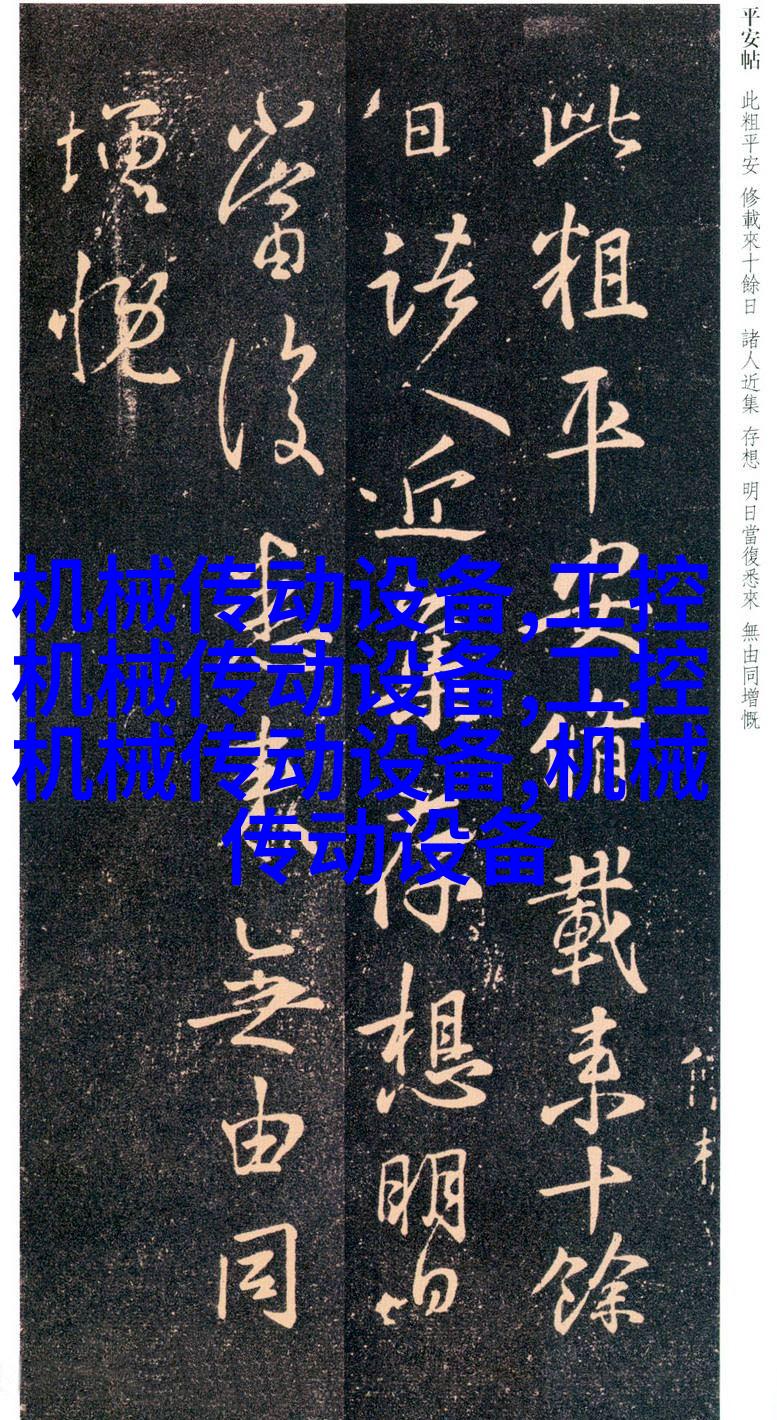 平安帖 此粗平安 修載來十餘日 諸人近集 存想 明日當復悉來 無由同增慨
此粗平安脩載来十餘
日諸人近集存想明日
當復悉来無由同
增慨
机械传动设备,工控
机械传动设备,工控
机械传动设备,机械
传动设备